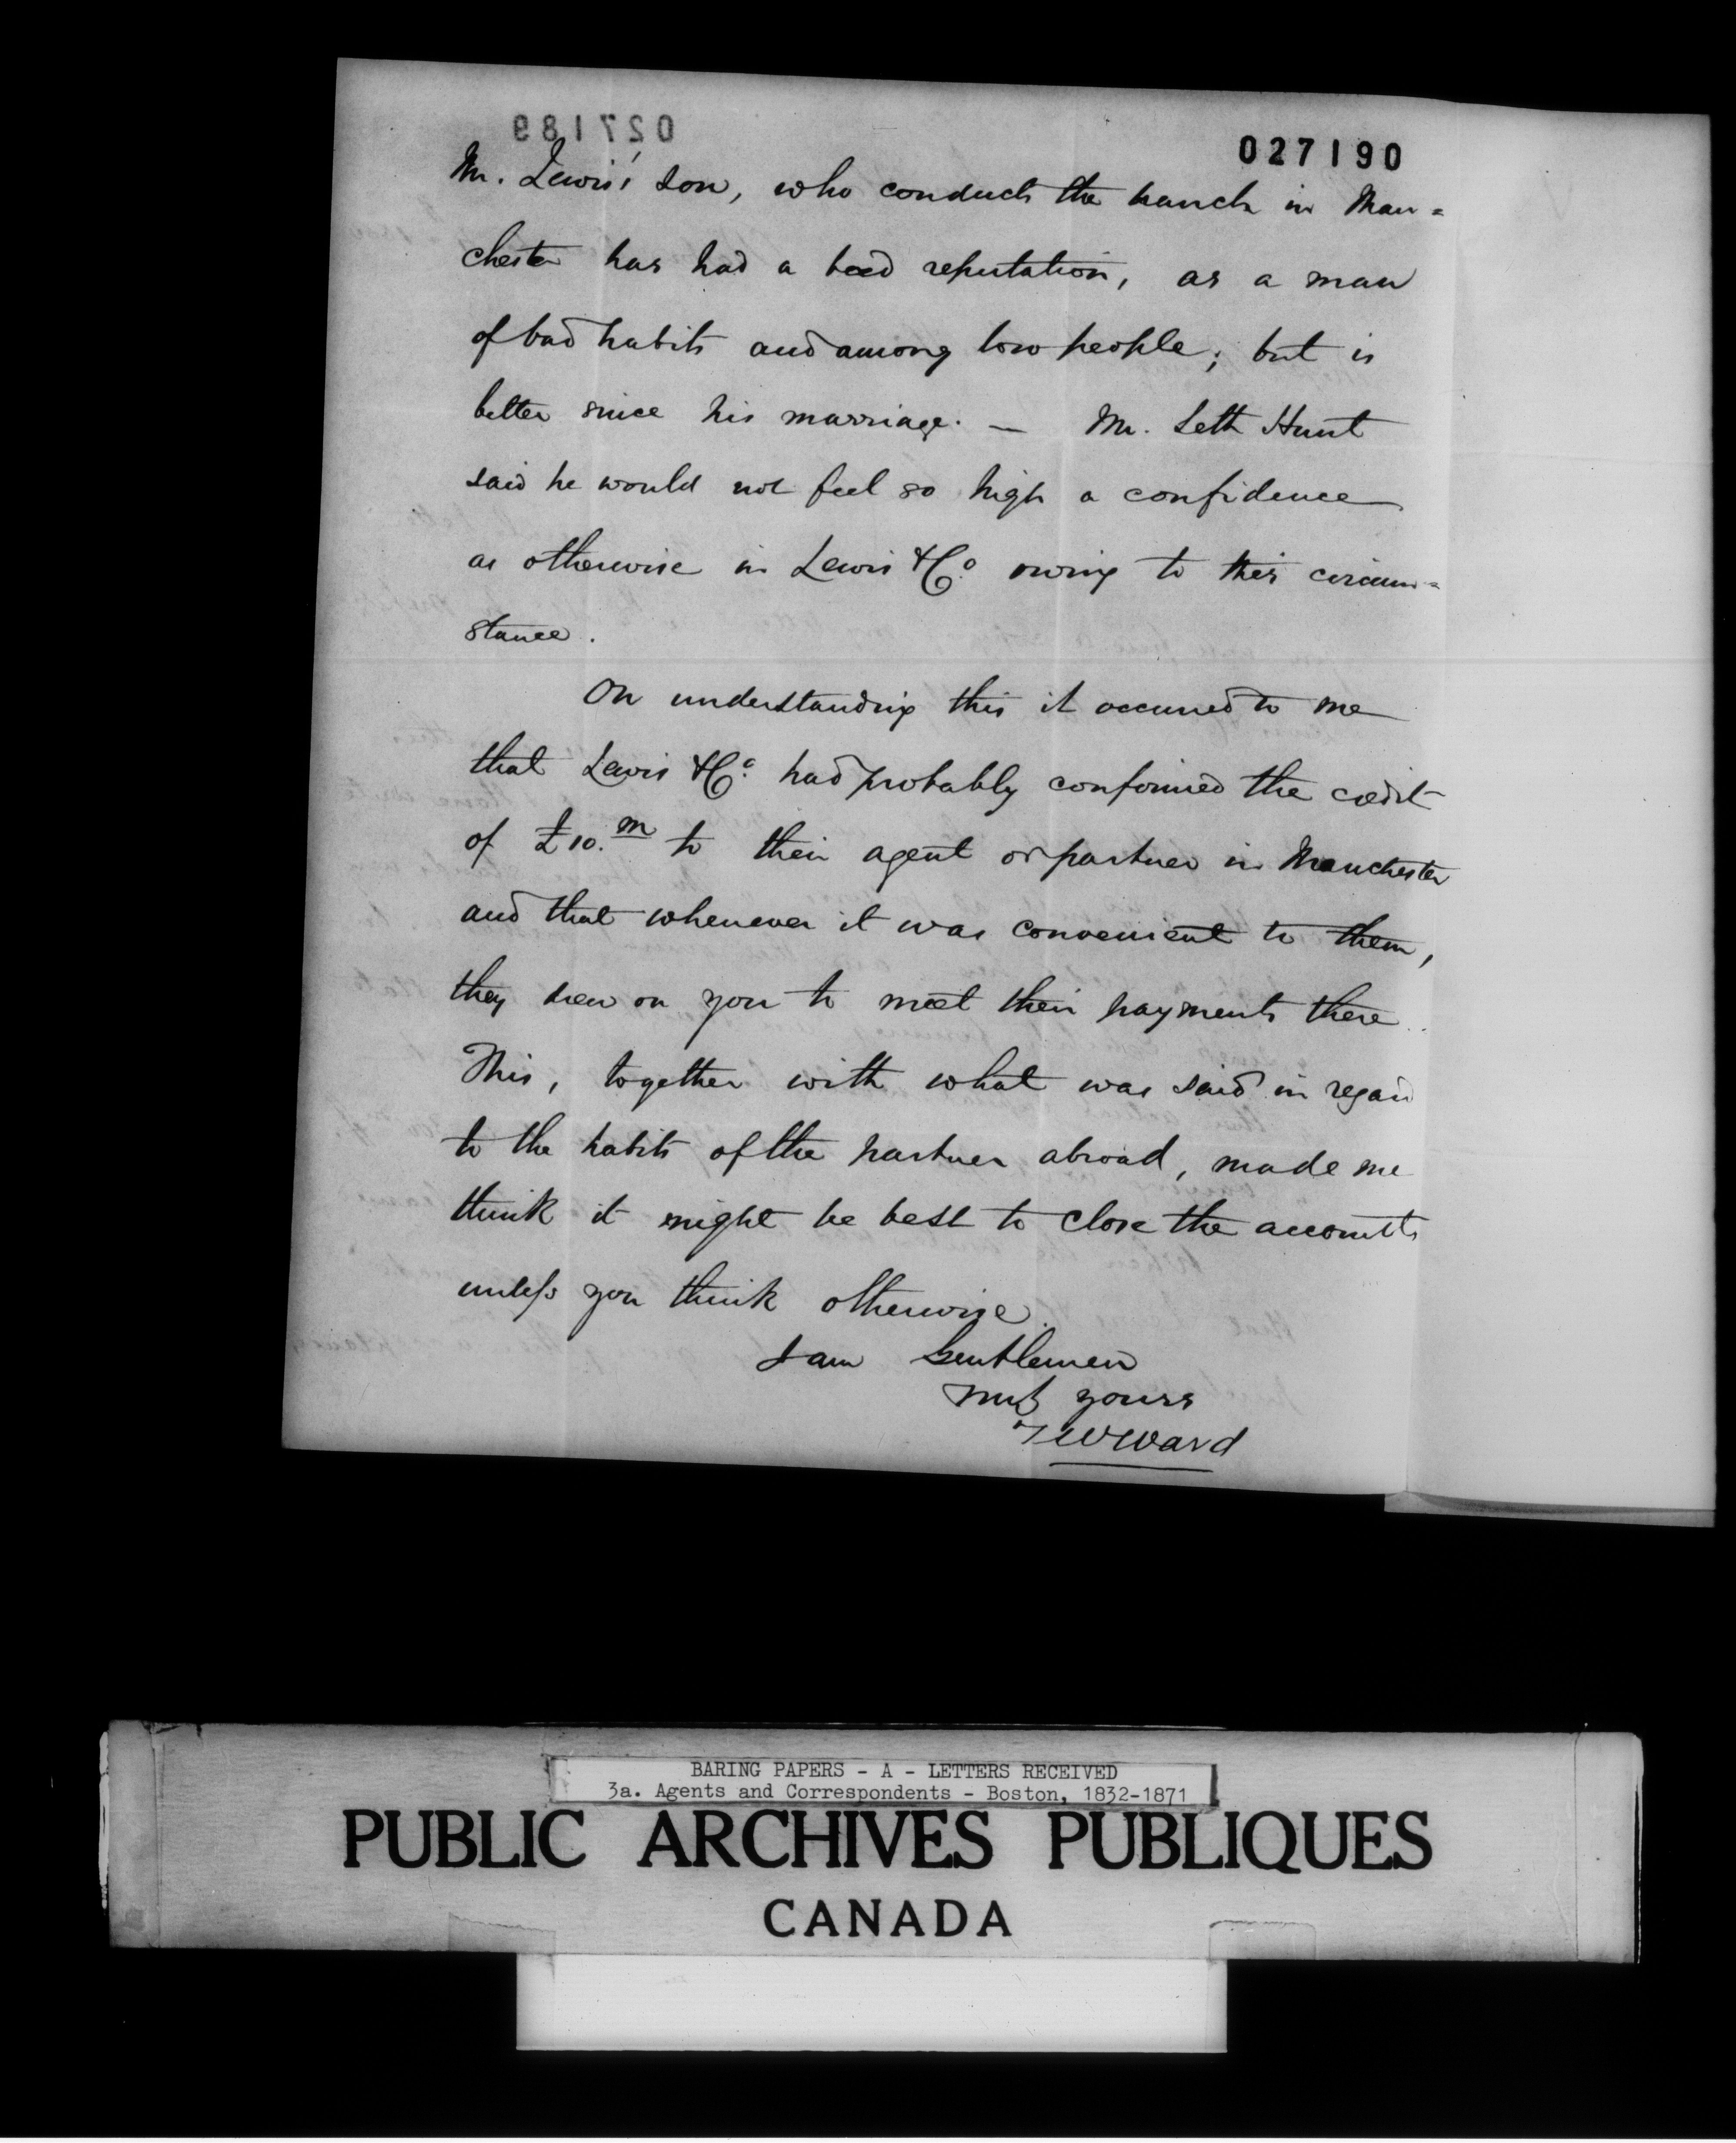 027189
027190
Mr. Lewis' son, who conducts the branch in Man=
chester has had a bad reputation, as a man
of bad habits and among low people; but is
better since his marriage. — Mr. Seth Hunt
said he would not feel so high a confidence
as otherwise in Lewis & Co. owing to this circum=
stance.
On understanding this it occurred to me
that Lewis & Co. had probably confirmed the credit
of £10.m to their agent or partner in Manchester
and that whenever it was convenient to them,
they drew on you to meet their payments there.
This, together with what was said in regard
to the habits of the partner abroad, made me
think it might be best to close the accounts
unless you think otherwise.
I am Gentlemen
yours
T W Ward
BARING PAPERS - A - LETTERS RECEIVED
3a. Agents and Correspondents - Boston, 1832-1871
PUBLIC ARCHIVES PUBLIQUES
CANADA